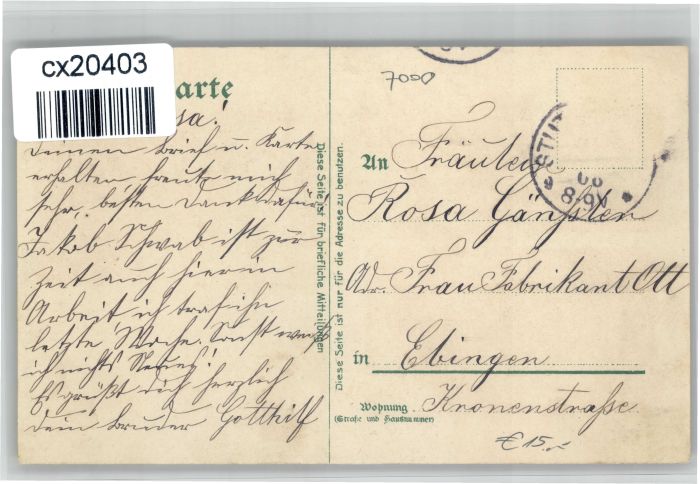 cx20403
arte
sa!
Deinen Brief u. Karte
erhalten freute mich
sehr, besten Dank dafür!
Jakob Schwab ist zur
Zeit auch hier in
Arbeit ich traf ihn
letzte Woche. Sonst weiß
ich nichts Neues!
Es grüßt dich herzlich
dein Bruder Gotthilf
Diese Seite ist für briefliche Mitteilungen
Diese Seite ist nur für die Adresse zu benutzen.
7000
STU
06
8-9N
An Fräulein
Rosa
Adr. Frau Fabrikant Ott
in Ebingen
Wohnung Kronenstraße
(Straße und Hausnummer)
€ 15.-